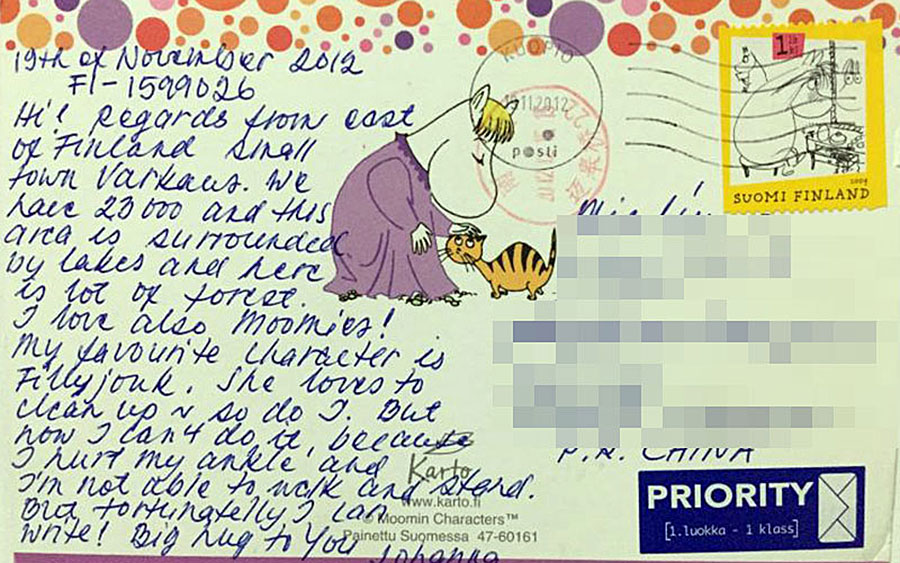 19th of November 2012
FI-1599026
Hi! Regards from east
of Finland small
town Varkaus. We
have 23 000 and this
area is surrounded
by lakes and here
is lot of forest.
I love also Moomies!
My favourite character is
Fillyjonk. She loves to
clean up ~ so do I. But
now I can't do it, because
I hurt my ankle, and
I'm not able to walk and stand.
But fortunatelly I can
write! Big hug to You
Johanna
KUOPIO
11.2012
posti
1
lk
kl
2009
SUOMI FINLAND
P.R. CHINA
Karto
www.karto.fi
© Moomin Characters™
Painettu Suomessa 47-60161
PRIORITY
[1.luokka - 1 klass]